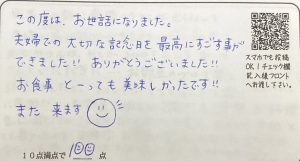 この度は、お世話になりました。
夫婦での大切な記念日を最高にすごす事が
できました!! ありがとうございました!!
お食事 とーっても美味しかったです!!
また 来ます
10点満点で 100 点
スマホでも投稿
OK!チェック欄
記入後フロント
へお渡し下さい。